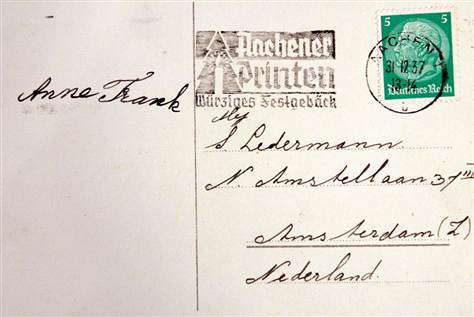 Anne Frank
Aachener
Printen
Würziges Festgebäck
5 5
AACHEN
31.12.37
Deutsches Reich
S Ledermann
N. Amstellaan 37 III
Amsterdam (Z)
Nederland.